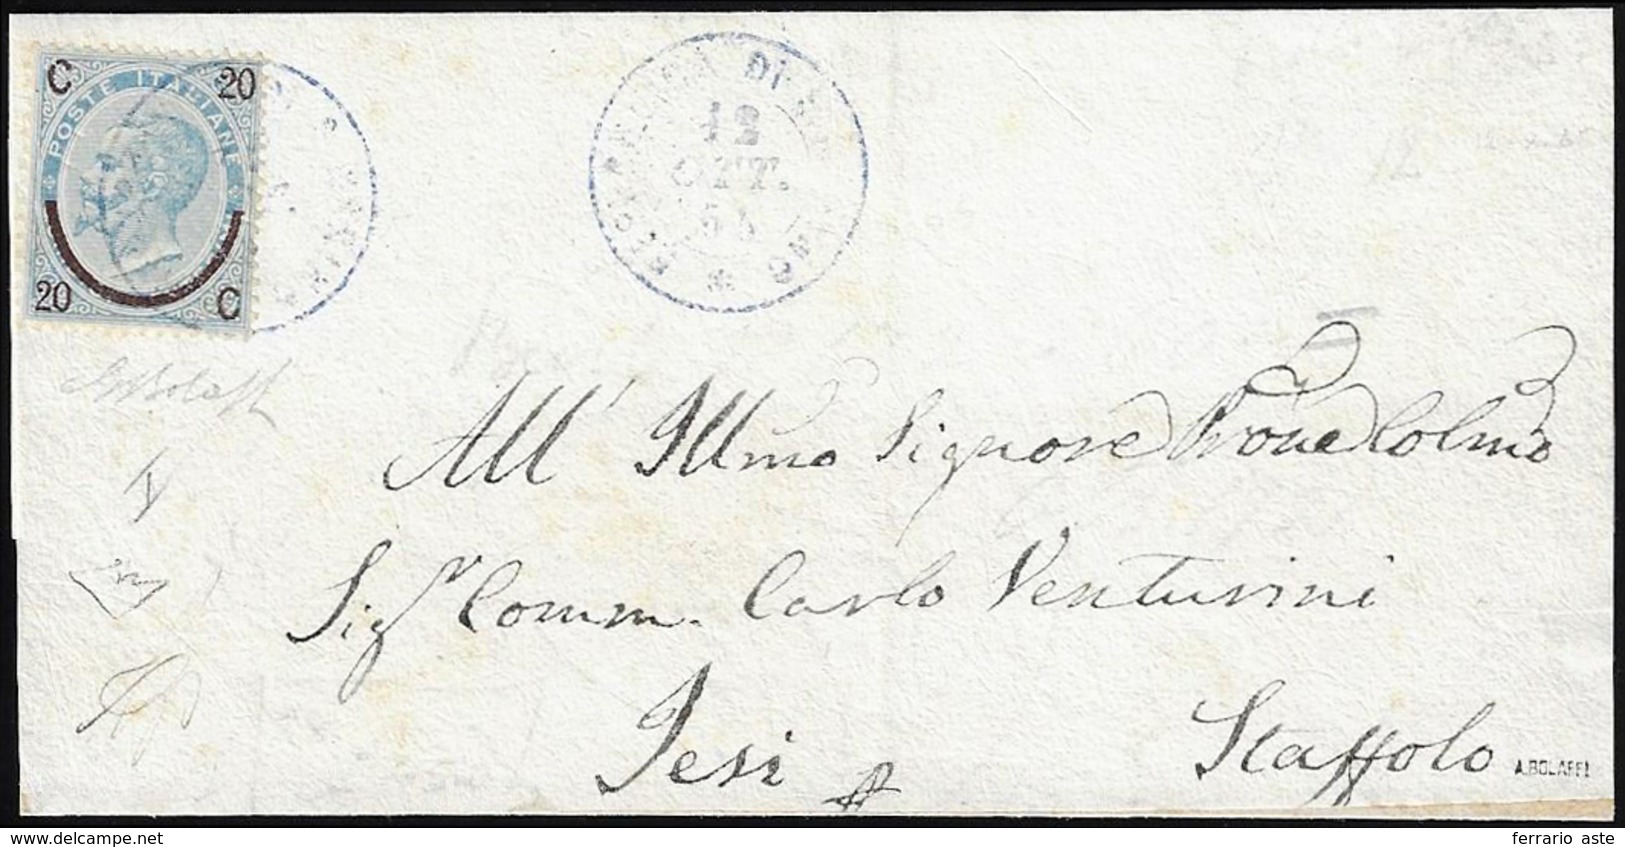 C 20
POSTE ITALIANE
20 C
12
OTT.
All' Illmo Signore Prone Colmo
Sigr Comm. Carlo Venturini
Jesi Staffolo
A.BOLAFFI
www.delcampe.net
ferrario aste